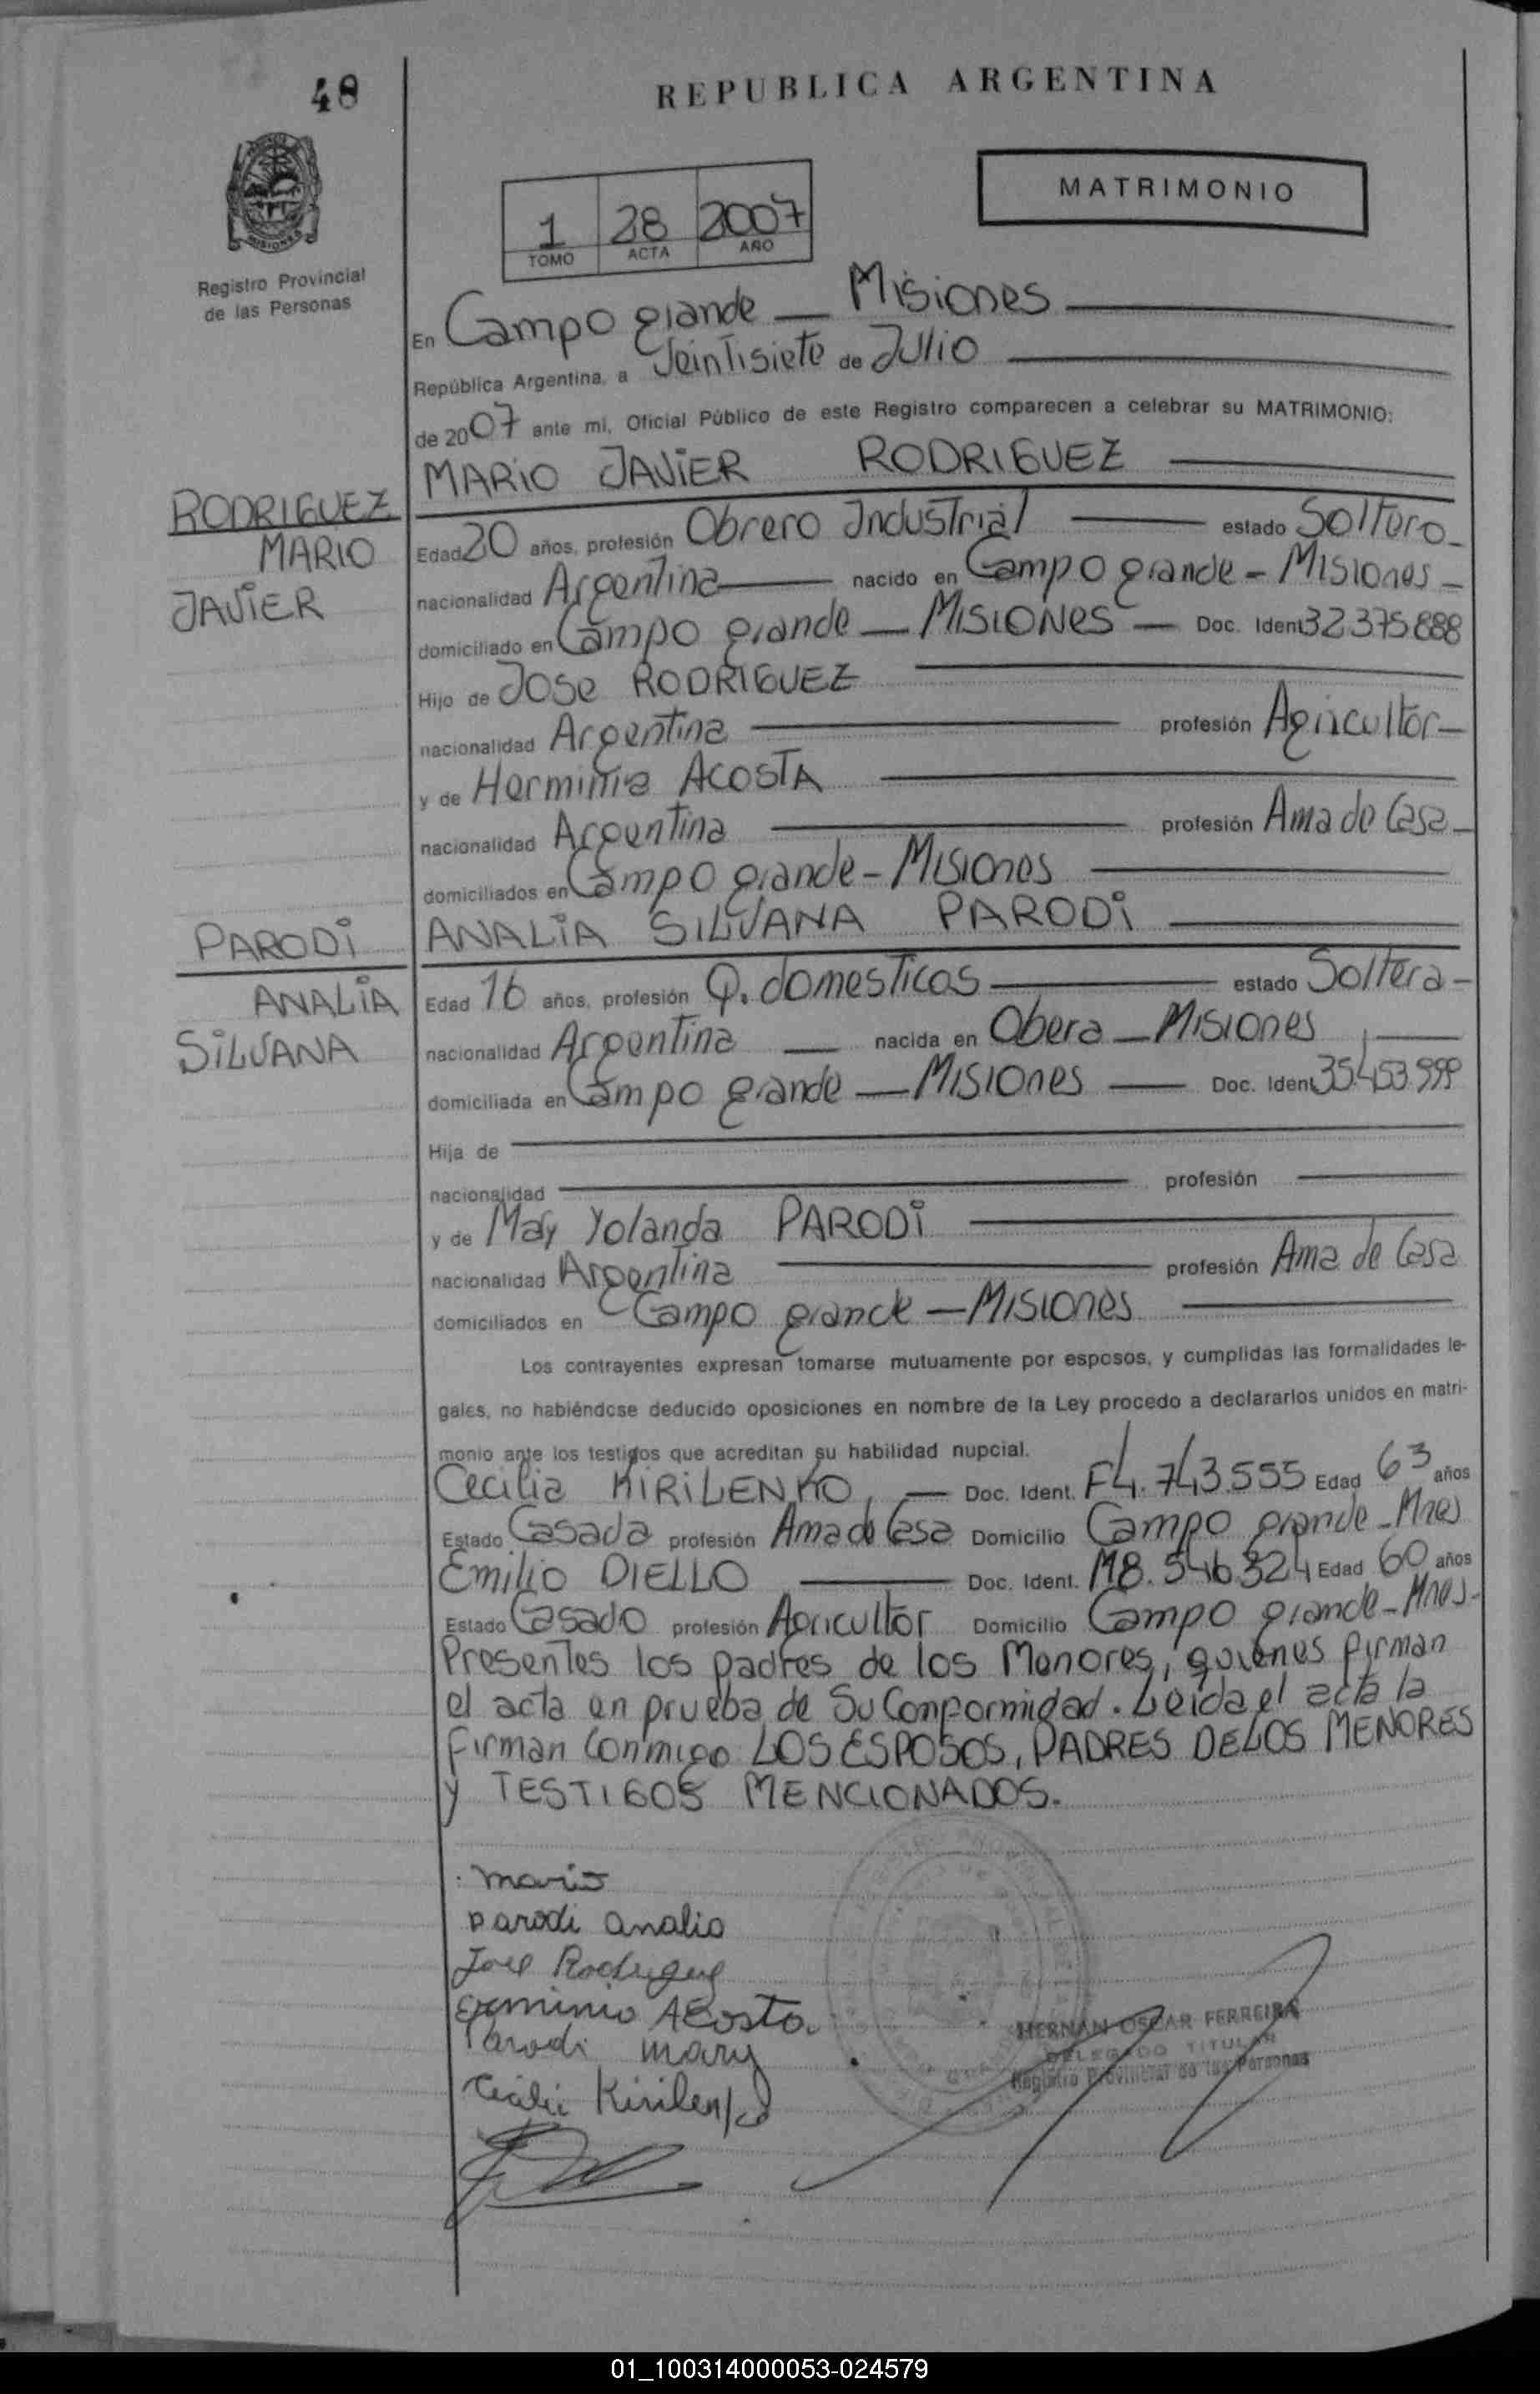 48
REPUBLICA ARGENTINA
MATRIMONIO
1 28 2007
TOMO ACTA AÑO
MISIONES
Registro Provincial
de las Personas
En Campo grande — Misiones
República Argentina, a Veintisiete de Julio
de 2007 ante mi, Oficial Público de este Registro comparecen a celebrar su MATRIMONIO:
MARIO JAVIER RODRIGUEZ
RODRIGUEZ
MARIO
JAVIER
Edad 20 años, profesión Obrero Industrial estado Soltero
nacionalidad Argentina nacido en Campo grande - Misiones
domiciliado en Campo grande — MISIONES — Doc. Ident. 32.375.888
Hijo de Jose RODRIGUEZ
nacionalidad Argentina profesión Agricultor
y de Herminia ACOSTA
nacionalidad Argentina profesión Ama de Casa
domiciliados en Campo grande - Misiones
PARODI
ANALIA
SILVANA
ANALIA SILVANA PARODI
Edad 16 años, profesión Q. domesticos estado Soltera
nacionalidad Argentina nacida en Obera — Misiones
domiciliada en Campo grande — Misiones — Doc. Ident. 35.453.999
Hija de
nacionalidad profesión
y de Mary Yolanda PARODI
nacionalidad Argentina profesión Ama de Casa
domiciliados en Campo grande — Misiones
Los contrayentes expresan tomarse mutuamente por esposos, y cumplidas las formalidades le-
gales, no habiéndose deducido oposiciones en nombre de la Ley procedo a declararlos unidos en matri-
monio ante los testigos que acreditan su habilidad nupcial.
Cecilia KIRILENKO, — Doc. Ident. F4.743.555 Edad 63 años
Estado Casada profesión Ama de Casa Domicilio Campo grande - Mnes
Emilio DIELLO Doc. Ident. M8.546.324 Edad 60 años
Estado Casado profesión Agricultor Domicilio Campo grande - Mnes.
Presentes los padres de los Menores, quienes firman
el acta en prueba de Su Conformidad. Leida el acta la
firman Conmigo LOS ESPOSOS, PADRES DE LOS MENORES
y TESTIGOS MENCIONADOS.
mario
parodi analia
Jose Rodriguez
erminia Acosta
Parodi mary
Cecilia Kirilenko
HERNAN OSCAR FERREIRA
DELEGADO TITULAR
Registro Provincial de las Personas
01_100314000053-024579